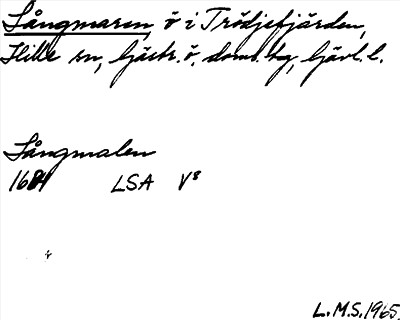 Långmaren, ö i Trödjefjärden,
Hille sn, Gästr. ö. doms. tg, Gävl. l.
Långmalen
1684 LSA V⁸
L.M.S. 1965.